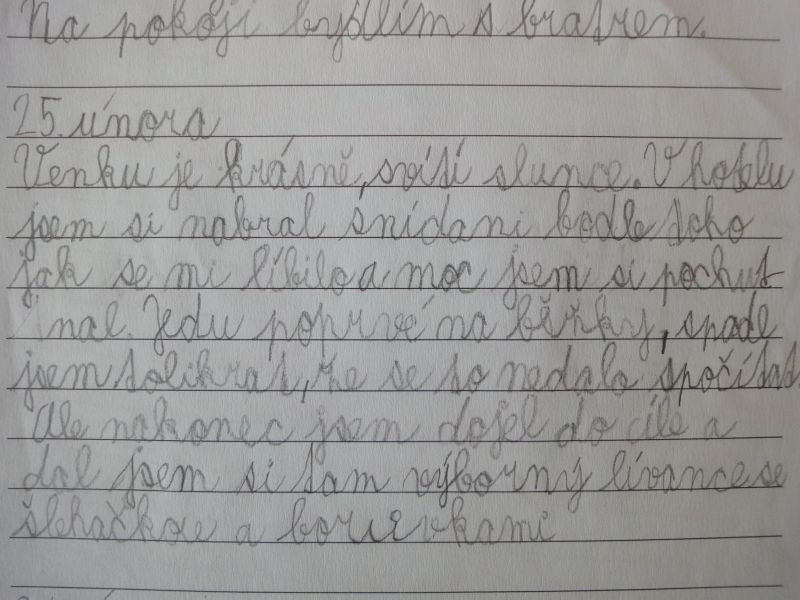 Na pokoji bydlím s bratrem.
25. února
Venku je krásně, svítí slunce. V hotelu
jsem si nabral snídani podle toho
jak se mi líbilo a moc jsem si pochut
nal. Jedu poprvé na běžky, spadl
jsem tolikrát, že se to nedalo spočítat
Ale nakonec jsem dojel do cíle a
dal jsem si tam výborný lívance se
šlehačkou a borůvkami